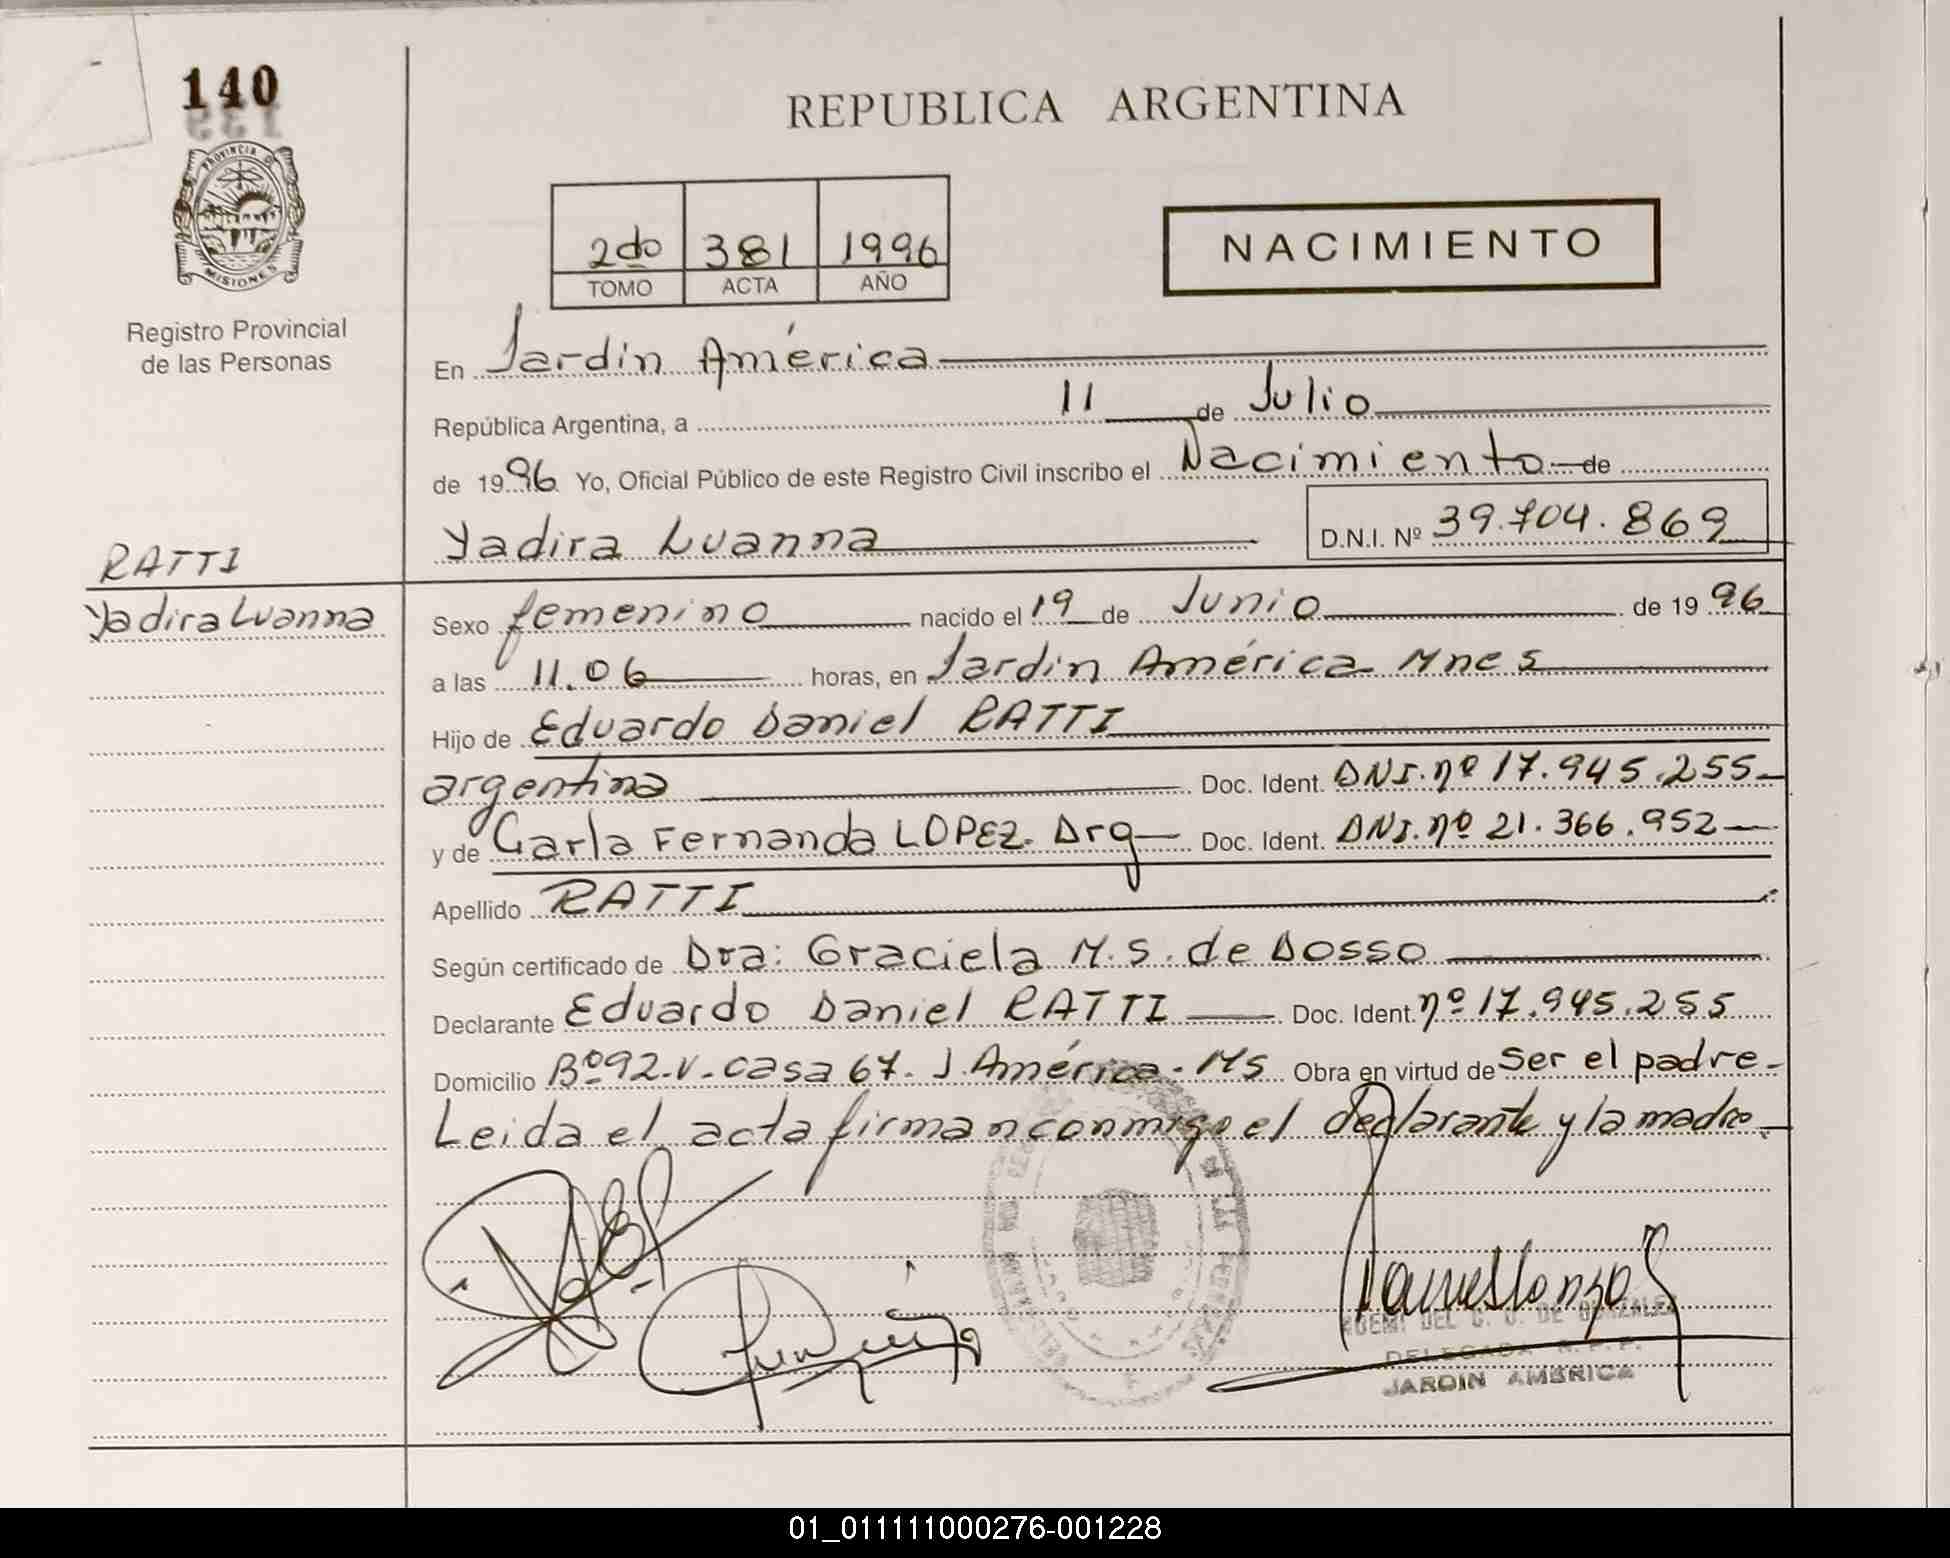 140
PROVINCIA DE
MISIONES
Registro Provincial
de las Personas
REPUBLICA ARGENTINA
2do 381 1996
TOMO ACTA AÑO
NACIMIENTO
En Jardin América
República Argentina, a 11 de Julio
de 1996 Yo, Oficial Público de este Registro Civil inscribo el Nacimiento de
Yadira Luanna D.N.I. Nº 39.704.869
RATTI
Yadira Luanna
Sexo femenino nacido el 19 de Junio de 1996
a las 11.06 horas, en Jardin América Mnes
Hijo de Eduardo Daniel RATTI
argentina Doc. Ident. DNI. nº 17.945.255
y de Carla Fernanda LOPEZ. Arg Doc. Ident. DNI. nº 21.366.952
Apellido RATTI
Según certificado de Dra: Graciela M.S. de Dosso
Declarante Eduardo Daniel RATTI Doc. Ident. nº 17.945.255
Domicilio Bº 92.V. casa 67. J. América. MS Obra en virtud de Ser el padre.
Leida el acta firman conmigo el declarante y la madre.
DELEGADA R.P.P.
JARDIN AMERICA
01_011111000276-001228